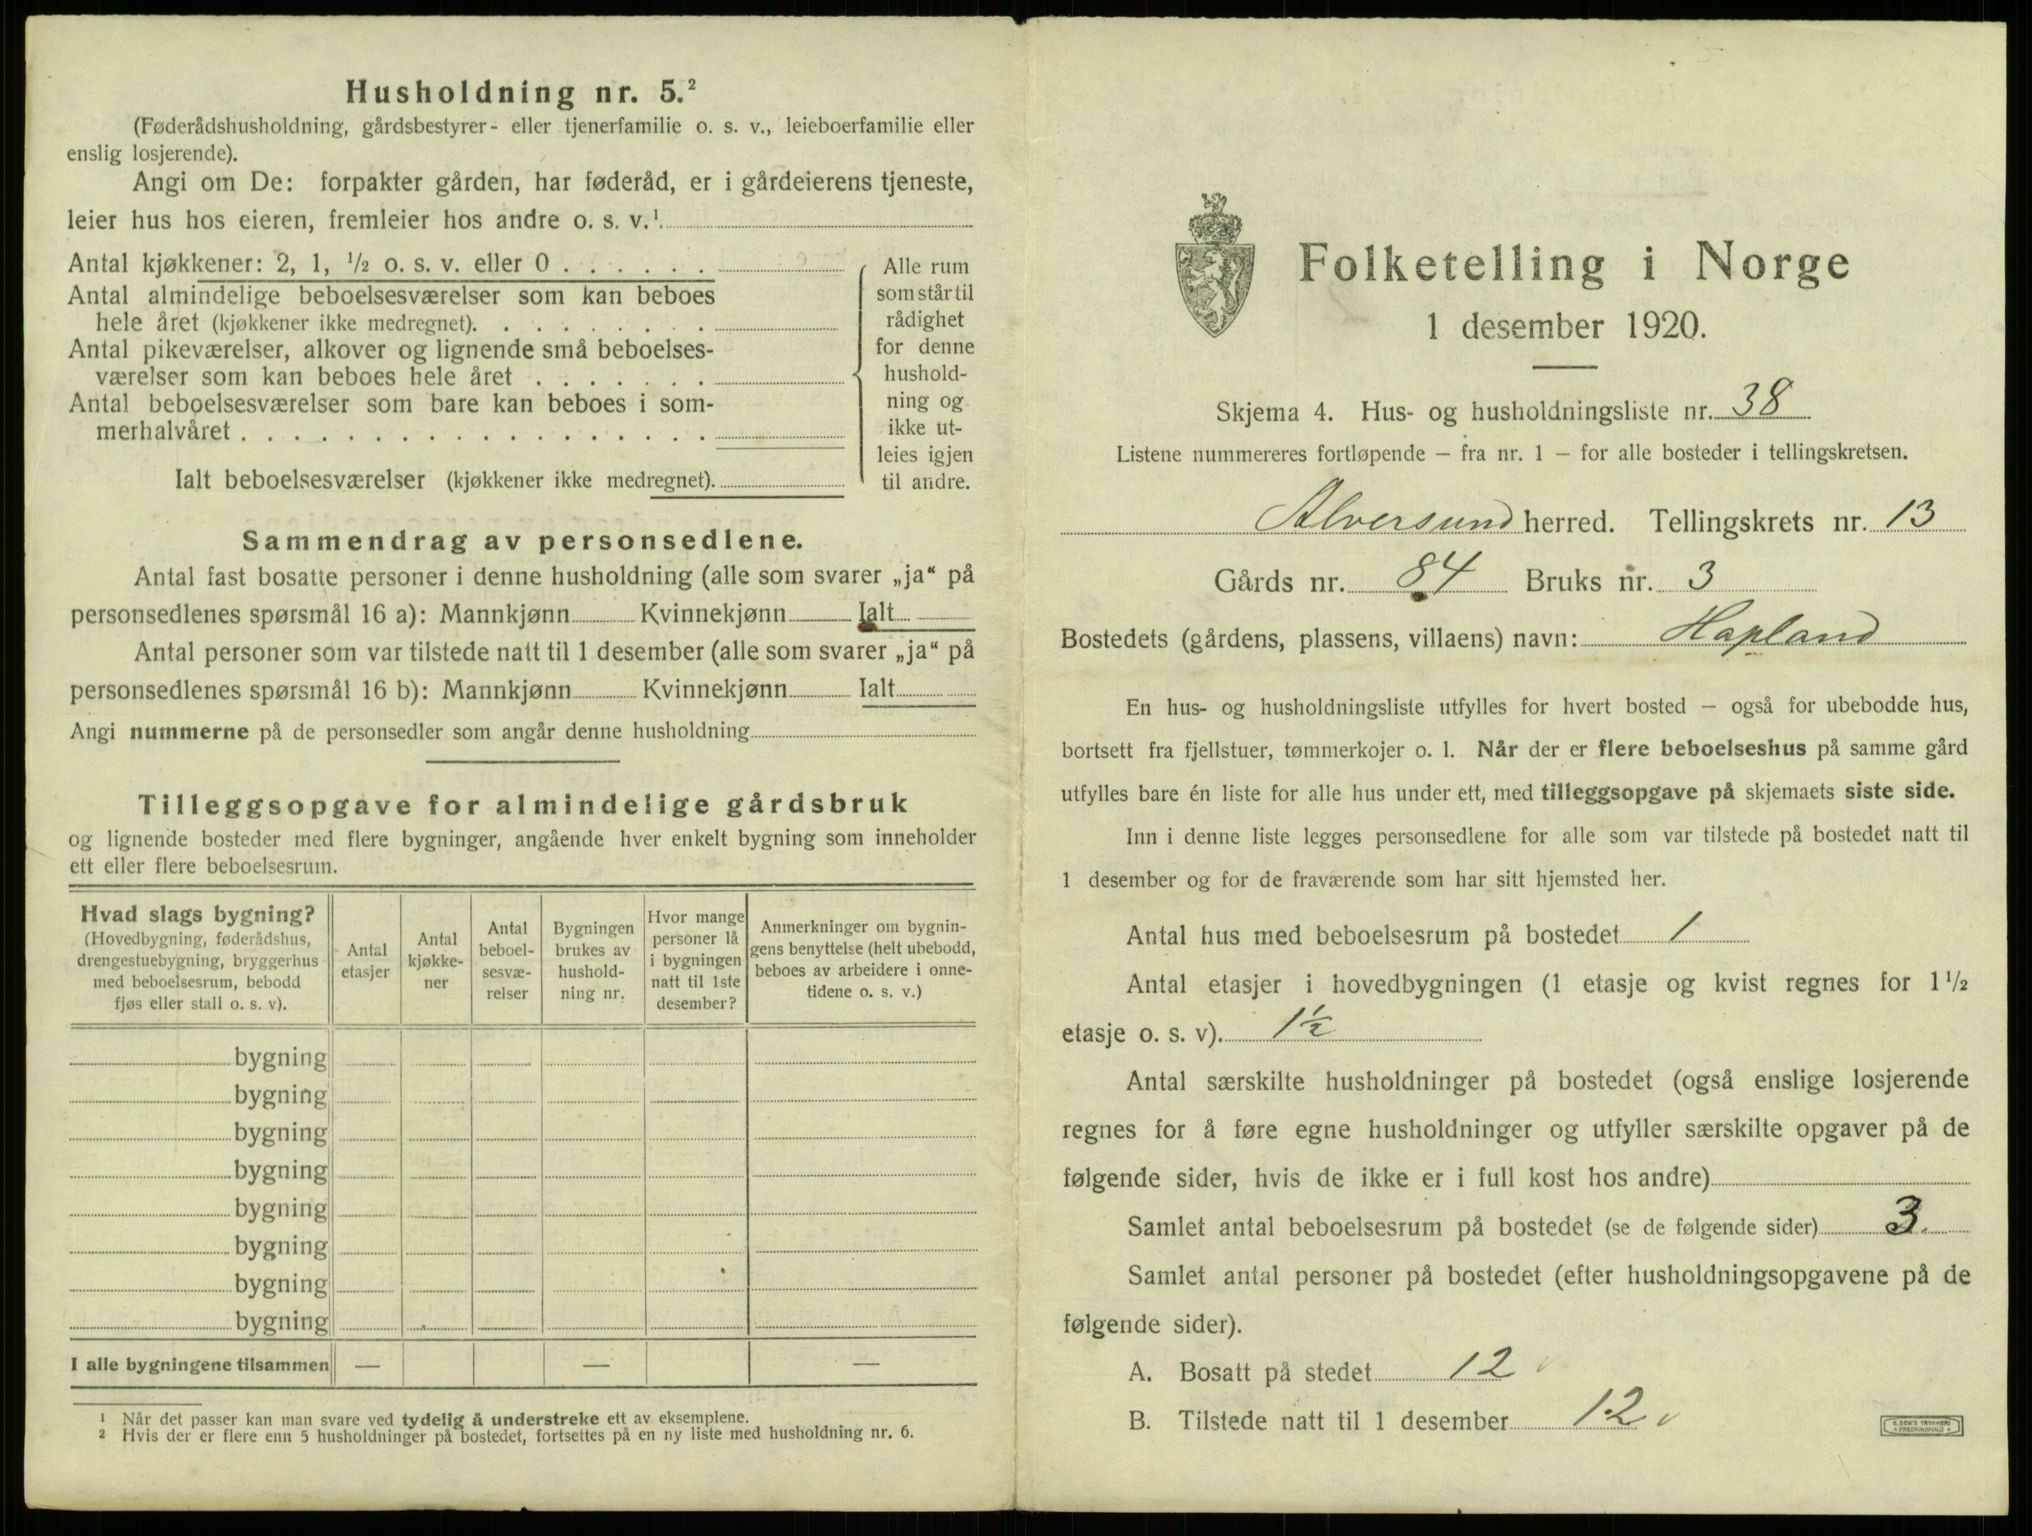 Husholdning nr. 5.²
(Føderådshusholdning, gårdsbestyrer- eller tjenerfamilie o. s. v., leieboerfamilie eller
enslig losjerende).
Angi om De: forpakter gården, har føderåd, er i gårdeierens tjeneste,
leier hus hos eieren, fremleier hos andre o. s. v.¹
Antal kjøkkener: 2, 1, ½ o. s. v. eller 0 . . . . . .
Antal almindelige beboelsesværelser som kan beboes
hele året (kjøkkener ikke medregnet). . . . . . . . .
Antal pikeværelser, alkover og lignende små beboelses-
værelser som kan beboes hele året . . . . . . .
Antal beboelsesværelser som bare kan beboes i som-
merhalvåret . . . . . . . . . . . . . . . . . .
Ialt beboelsesværelser (kjøkkener ikke medregnet).
Alle rum
som står til
rådighet
for denne
hushold-
ning og
ikke ut-
leies igjen
til andre.
Sammendrag av personsedlene.
Antal fast bosatte personer i denne husholdning (alle som svarer „ja“ på
personsedlenes spørsmål 16 a): Mannkjønn Kvinnekjønn Ialt
Antal personer som var tilstede natt til 1 desember (alle som svarer „ja“ på
personsedlenes spørsmål 16 b): Mannkjønn Kvinnekjønn Ialt
Angi nummerne på de personsedler som angår denne husholdning
Tilleggsopgave for almindelige gårdsbruk
og lignende bosteder med flere bygninger, angående hver enkelt bygning som inneholder
ett eller flere beboelsesrum.
Hvad slags bygning?
(Hovedbygning, føderådshus,
drengestuebygning, bryggerhus
med beboelsesrum, bebodd
fjøs eller stall o. s. v).
Antal
etasjer
Antal
kjøkke-
ner
Antal
beboel-
sesvæ-
relser
Bygningen
brukes av
hushold-
ning nr.
Hvor mange
personer lå
i bygningen
natt til 1ste
desember?
Anmerkninger om bygnin-
gens benyttelse (helt ubebodd,
beboes av arbeidere i onne-
tidene o. s. v.)
bygning
bygning
bygning
bygning
bygning
bygning
bygning
bygning
I alle bygningene tilsammen — — —
¹ Når det passer kan man svare ved tydelig å understreke ett av eksemplene.
² Hvis der er flere enn 5 husholdninger på bostedet, fortsettes på en ny liste med husholdning nr. 6.
Folketelling i Norge
1 desember 1920.
Skjema 4. Hus- og husholdningsliste nr. 38
Listene nummereres fortløpende – fra nr. 1 – for alle bosteder i tellingskretsen.
Alversund herred. Tellingskrets nr. 13
Gårds nr. 84 Bruks nr. 3
Bostedets (gårdens, plassens, villaens) navn: Hopland
En hus- og husholdningsliste utfylles for hvert bosted – også for ubebodde hus,
bortsett fra fjellstuer, tømmerkojer o. l. Når der er flere beboelseshus på samme gård
utfylles bare én liste for alle hus under ett, med tilleggsopgave på skjemaets siste side.
Inn i denne liste legges personsedlene for alle som var tilstede på bostedet natt til
1 desember og for de fraværende som har sitt hjemsted her.
Antal hus med beboelsesrum på bostedet 1
Antal etasjer i hovedbygningen (1 etasje og kvist regnes for 1 ½
etasje o. s. v). 1½
Antal særskilte husholdninger på bostedet (også enslige losjerende
regnes for å føre egne husholdninger og utfyller særskilte opgaver på de
følgende sider, hvis de ikke er i full kost hos andre)
Samlet antal beboelsesrum på bostedet (se de følgende sider) 3.
Samlet antal personer på bostedet (efter husholdningsopgavene på de
følgende sider).
A. Bosatt på stedet 12
B. Tilstede natt til 1 desember 12